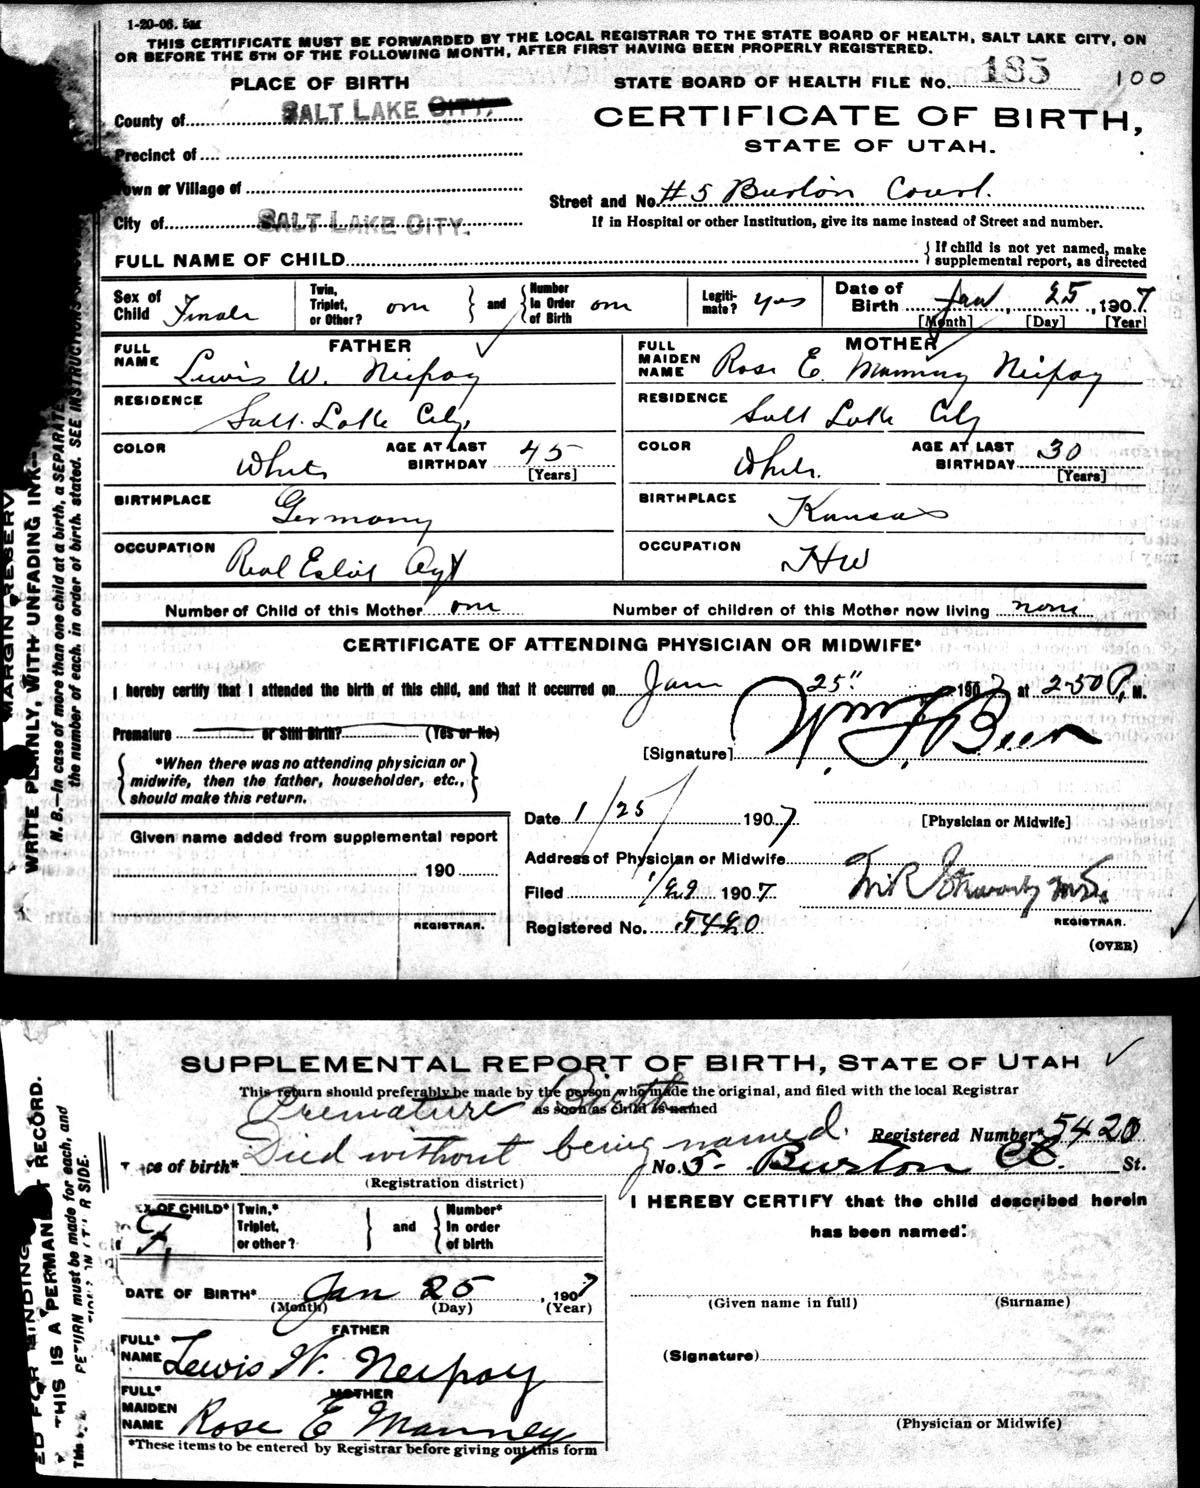 1-20-06. 5M
THIS CERTIFICATE MUST BE FORWARDED BY THE LOCAL REGISTRAR TO THE STATE BOARD OF HEALTH, SALT LAKE CITY, ON
OR BEFORE THE 5TH OF THE FOLLOWING MONTH, AFTER FIRST HAVING BEEN PROPERLY REGISTERED.
PLACE OF BIRTH
STATE BOARD OF HEALTH FILE No. 185 100
County of SALT LAKE CITY,
CERTIFICATE OF BIRTH,
STATE OF UTAH.
Precinct of
Town or Village of
Street and No. #5 Burton Court.
City of SALT LAKE CITY.
If in Hospital or other Institution, give its name instead of Street and number.
FULL NAME OF CHILD
If child is not yet named, make
supplemental report, as directed
Sex of Child Female
Twin, Triplet, or Other? one and Number In Order of Birth one
Legiti-mate? yes
Date of Birth Jan 25, 1907
[Month] [Day] [Year]
FATHER
FULL NAME Lewis W. Neipoy
RESIDENCE Salt Lake City,
COLOR White AGE AT LAST BIRTHDAY 45 [Years]
BIRTHPLACE Germany
OCCUPATION Real Estate Agt
MOTHER
FULL MAIDEN NAME Rose E. Manning Neipoy
RESIDENCE Salt Lake City
COLOR White. AGE AT LAST BIRTHDAY 30 [Years]
BIRTHPLACE Kansas
OCCUPATION HW
Number of Child of this Mother one Number of children of this Mother now living none
CERTIFICATE OF ATTENDING PHYSICIAN OR MIDWIFE*
I hereby certify that I attended the birth of this child, and that it occurred on Jan 25" 1907 at 2-50 P. M.
Premature or Still Birth? (Yes or No)
[Signature] Wm F Beer
*When there was no attending physician or
midwife, then the father, householder, etc.,
should make this return.
Date 1/25 1907
[Physician or Midwife]
Given name added from supplemental report
190
REGISTRAR.
Address of Physician or Midwife
Filed 1/29 1907
REGISTRAR.
Registered No. 5420
(OVER)
MARGIN RESERV
WRITE PLAINLY, WITH UNFADING INK—
N. B.—In case of more than one child at a birth, a SEPARATE
the number of each, in order of birth, stated. SEE INSTRUCTIONS
SUPPLEMENTAL REPORT OF BIRTH, STATE OF UTAH
This return should preferably be made by the person who made the original, and filed with the local Registrar
as soon as child is named
Premature Birth
Died without being named.
Registered Number* 5420
ce of birth*
(Registration district)
No. 5- Burton Ct. St.
SEX OF CHILD* F.
Twin,* Triplet, or other? and Number* In order of birth
I HEREBY CERTIFY that the child described herein
has been named:
DATE OF BIRTH* Jan 25, 1907
(Month) (Day) (Year)
(Given name in full) (Surname)
FATHER
FULL* NAME Lewis W. Neipoy
(Signature)
MOTHER
FULL* MAIDEN NAME Rose E Manney
(Physician or Midwife)
*These items to be entered by Registrar before giving out this form
ED FOR BINDING
THIS IS A PERMANENT RECORD.
RETURN must be made for each, and
SIDE.